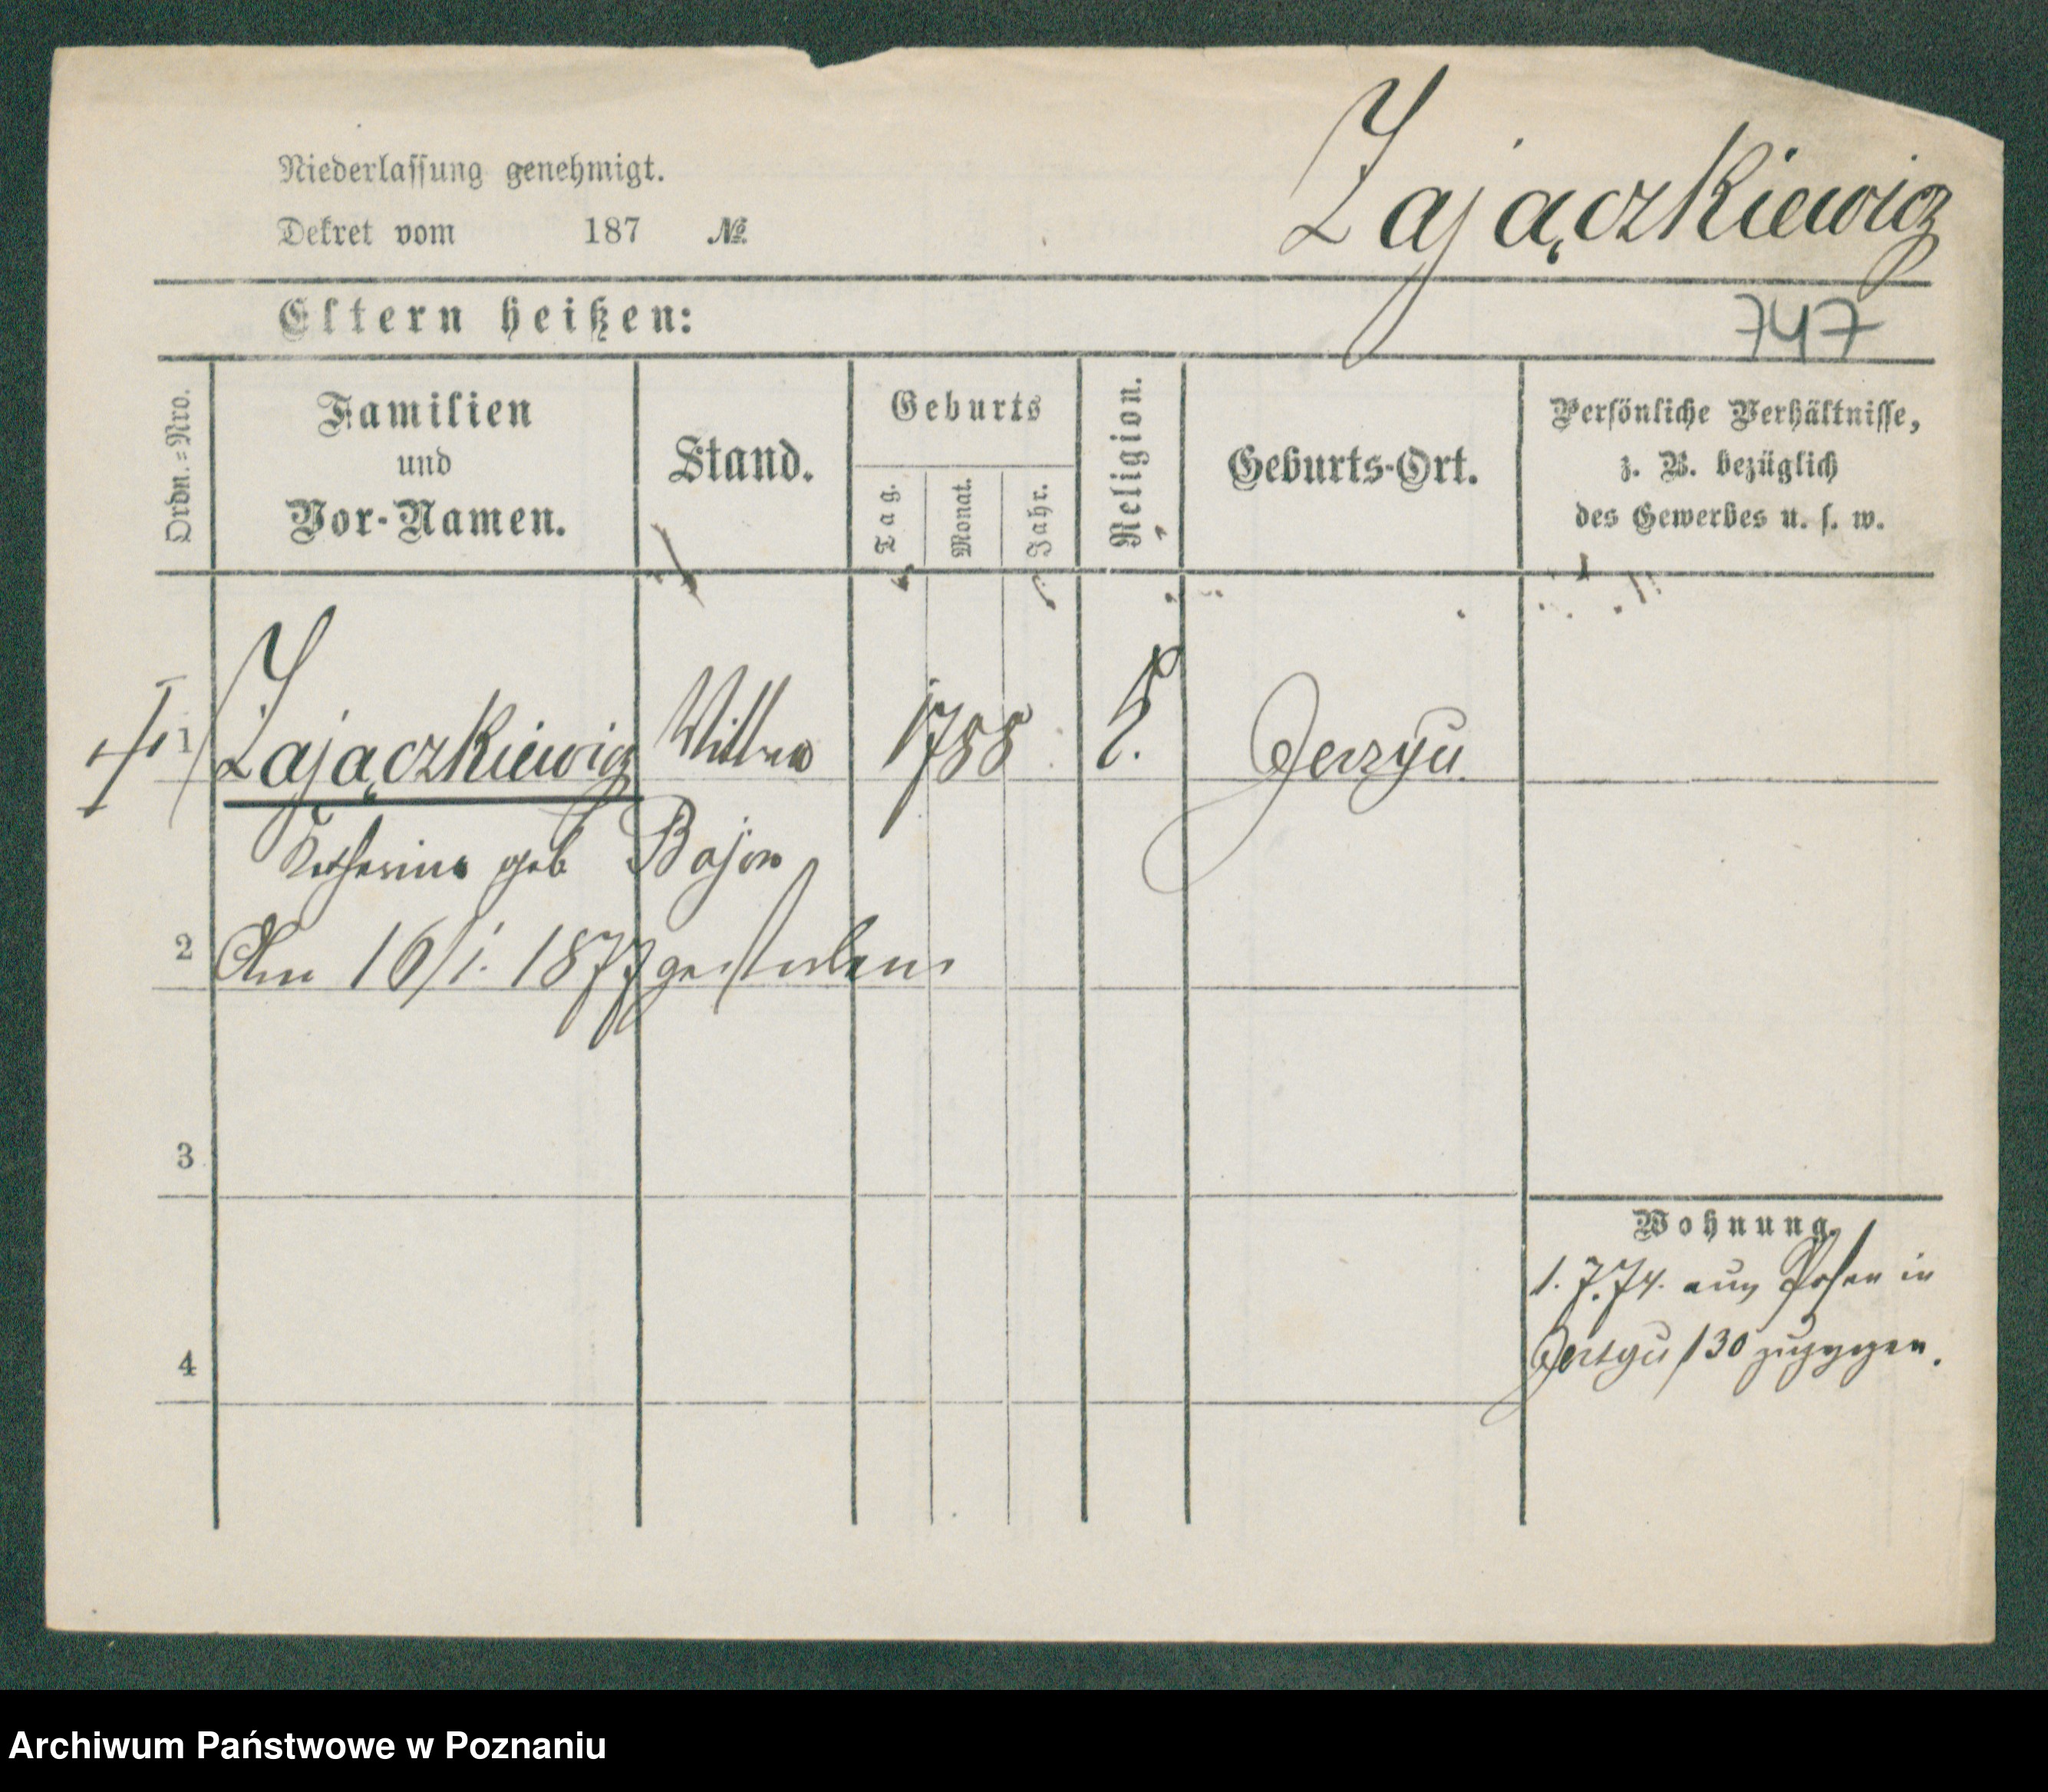 Zającziewicz
Niederlassung genehmigt.
Dekret vom 187 №
Eltern heißen:
747
Ordn.=Nro.
Familien
und
Vor-Namen.
Stand.
Geburts
Tag.
Monat.
Jahr.
Religion.
Geburts-Ort.
Persönliche Verhältnisse,
z. B. bezüglich
des Gewerbes u. s. w.
1 Zajączkiewicz Wittwe 1788 Jerzyu
Katharina geb Bajon
2 Am 16/1. 1877 gestorben
3
Wohnung.
1. 7. 74. aus Posen in
Jerzyu 130 zugezogen.
4
Archiwum Państwowe w Poznaniu